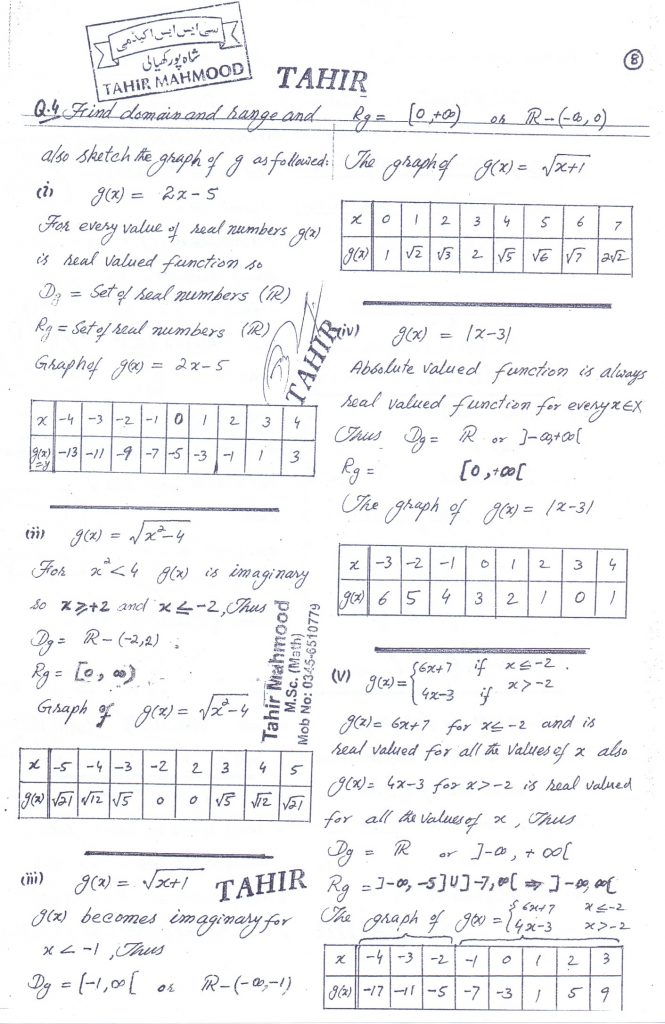 سی ایس ایس اکیڈمی
شاہ پور کھیالی
TAHIR MAHMOOD
TAHIR
8
Q.4 Find domain and range and
also sketch the graph of g as followed.
(i) g(x) = 2x-5
For every value of real numbers g(x)
is real valued function so
Dg = Set of real numbers (ℝ)
Rg = Set of real numbers (ℝ)
Graph of g(x) = 2x-5
x -4 -3 -2 -1 0 1 2 3 4
g(x)=y -13 -11 -9 -7 -5 -3 -1 1 3
(ii) g(x) = √x²-4
For x²<4 g(x) is imaginary
so x≥+2 and x≤-2, Thus
Dg = ℝ-(-2,2)
Rg = [0, ∞)
Graph of g(x) = √x²-4
x -5 -4 -3 -2 2 3 4 5
g(x) √21 √12 √5 0 0 √5 √12 √21
(iii) g(x) = √x+1 TAHIR
g(x) becomes imaginary for
x < -1, Thus
Dg = [-1,∞[ or ℝ-(-∞,-1)
Rg = [0,+∞) or ℝ-(-∞,0)
The graph of g(x) = √x+1
x 0 1 2 3 4 5 6 7
g(x) 1 √2 √3 2 √5 √6 √7 2√2
TAHIR
(iv) g(x) = |x-3|
Absolute valued function is always
real valued function for every x∈X
Thus Dg = ℝ or ]-∞,+∞[
Rg = [0,+∞[
The graph of g(x) = |x-3|
x -3 -2 -1 0 1 2 3 4
g(x) 6 5 4 3 2 1 0 1
Tahir Mahmood
M.Sc. (Math)
Mob No: 0345-6510779
(v) g(x) = { 6x+7 if x≤-2.
4x-3 if x>-2
g(x) = 6x+7 for x≤-2 and is
real valued for all the values of x also
g(x) = 4x-3 for x>-2 is real valued
for all the values of x, Thus
Dg = ℝ or ]-∞, +∞[
Rg = ]-∞, -5]U]-7,∞[ ⇒ ]-∞,∞[
The graph of g(x) = { 6x+7 x≤-2
4x-3 x>-2
x -4 -3 -2 -1 0 1 2 3
g(x) -17 -11 -5 -7 -3 1 5 9